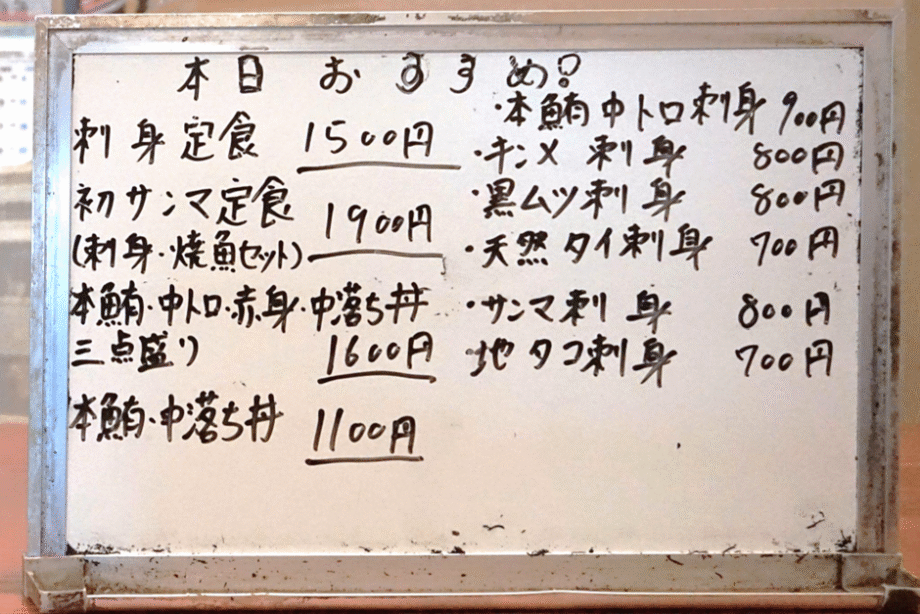 本日おすすめ?
刺身定食 1500円
初サンマ定食
(刺身・焼魚セット) 1900円
本鮪・中トロ・赤身・中落ち丼
三点盛り 1600円
本鮪・中落ち丼 1100円
・本鮪中トロ刺身 900円
・キンメ刺身 800円
・黒ムツ刺身 800円
・天然タイ刺身 700円
・サンマ刺身 800円
地タコ刺身 700円